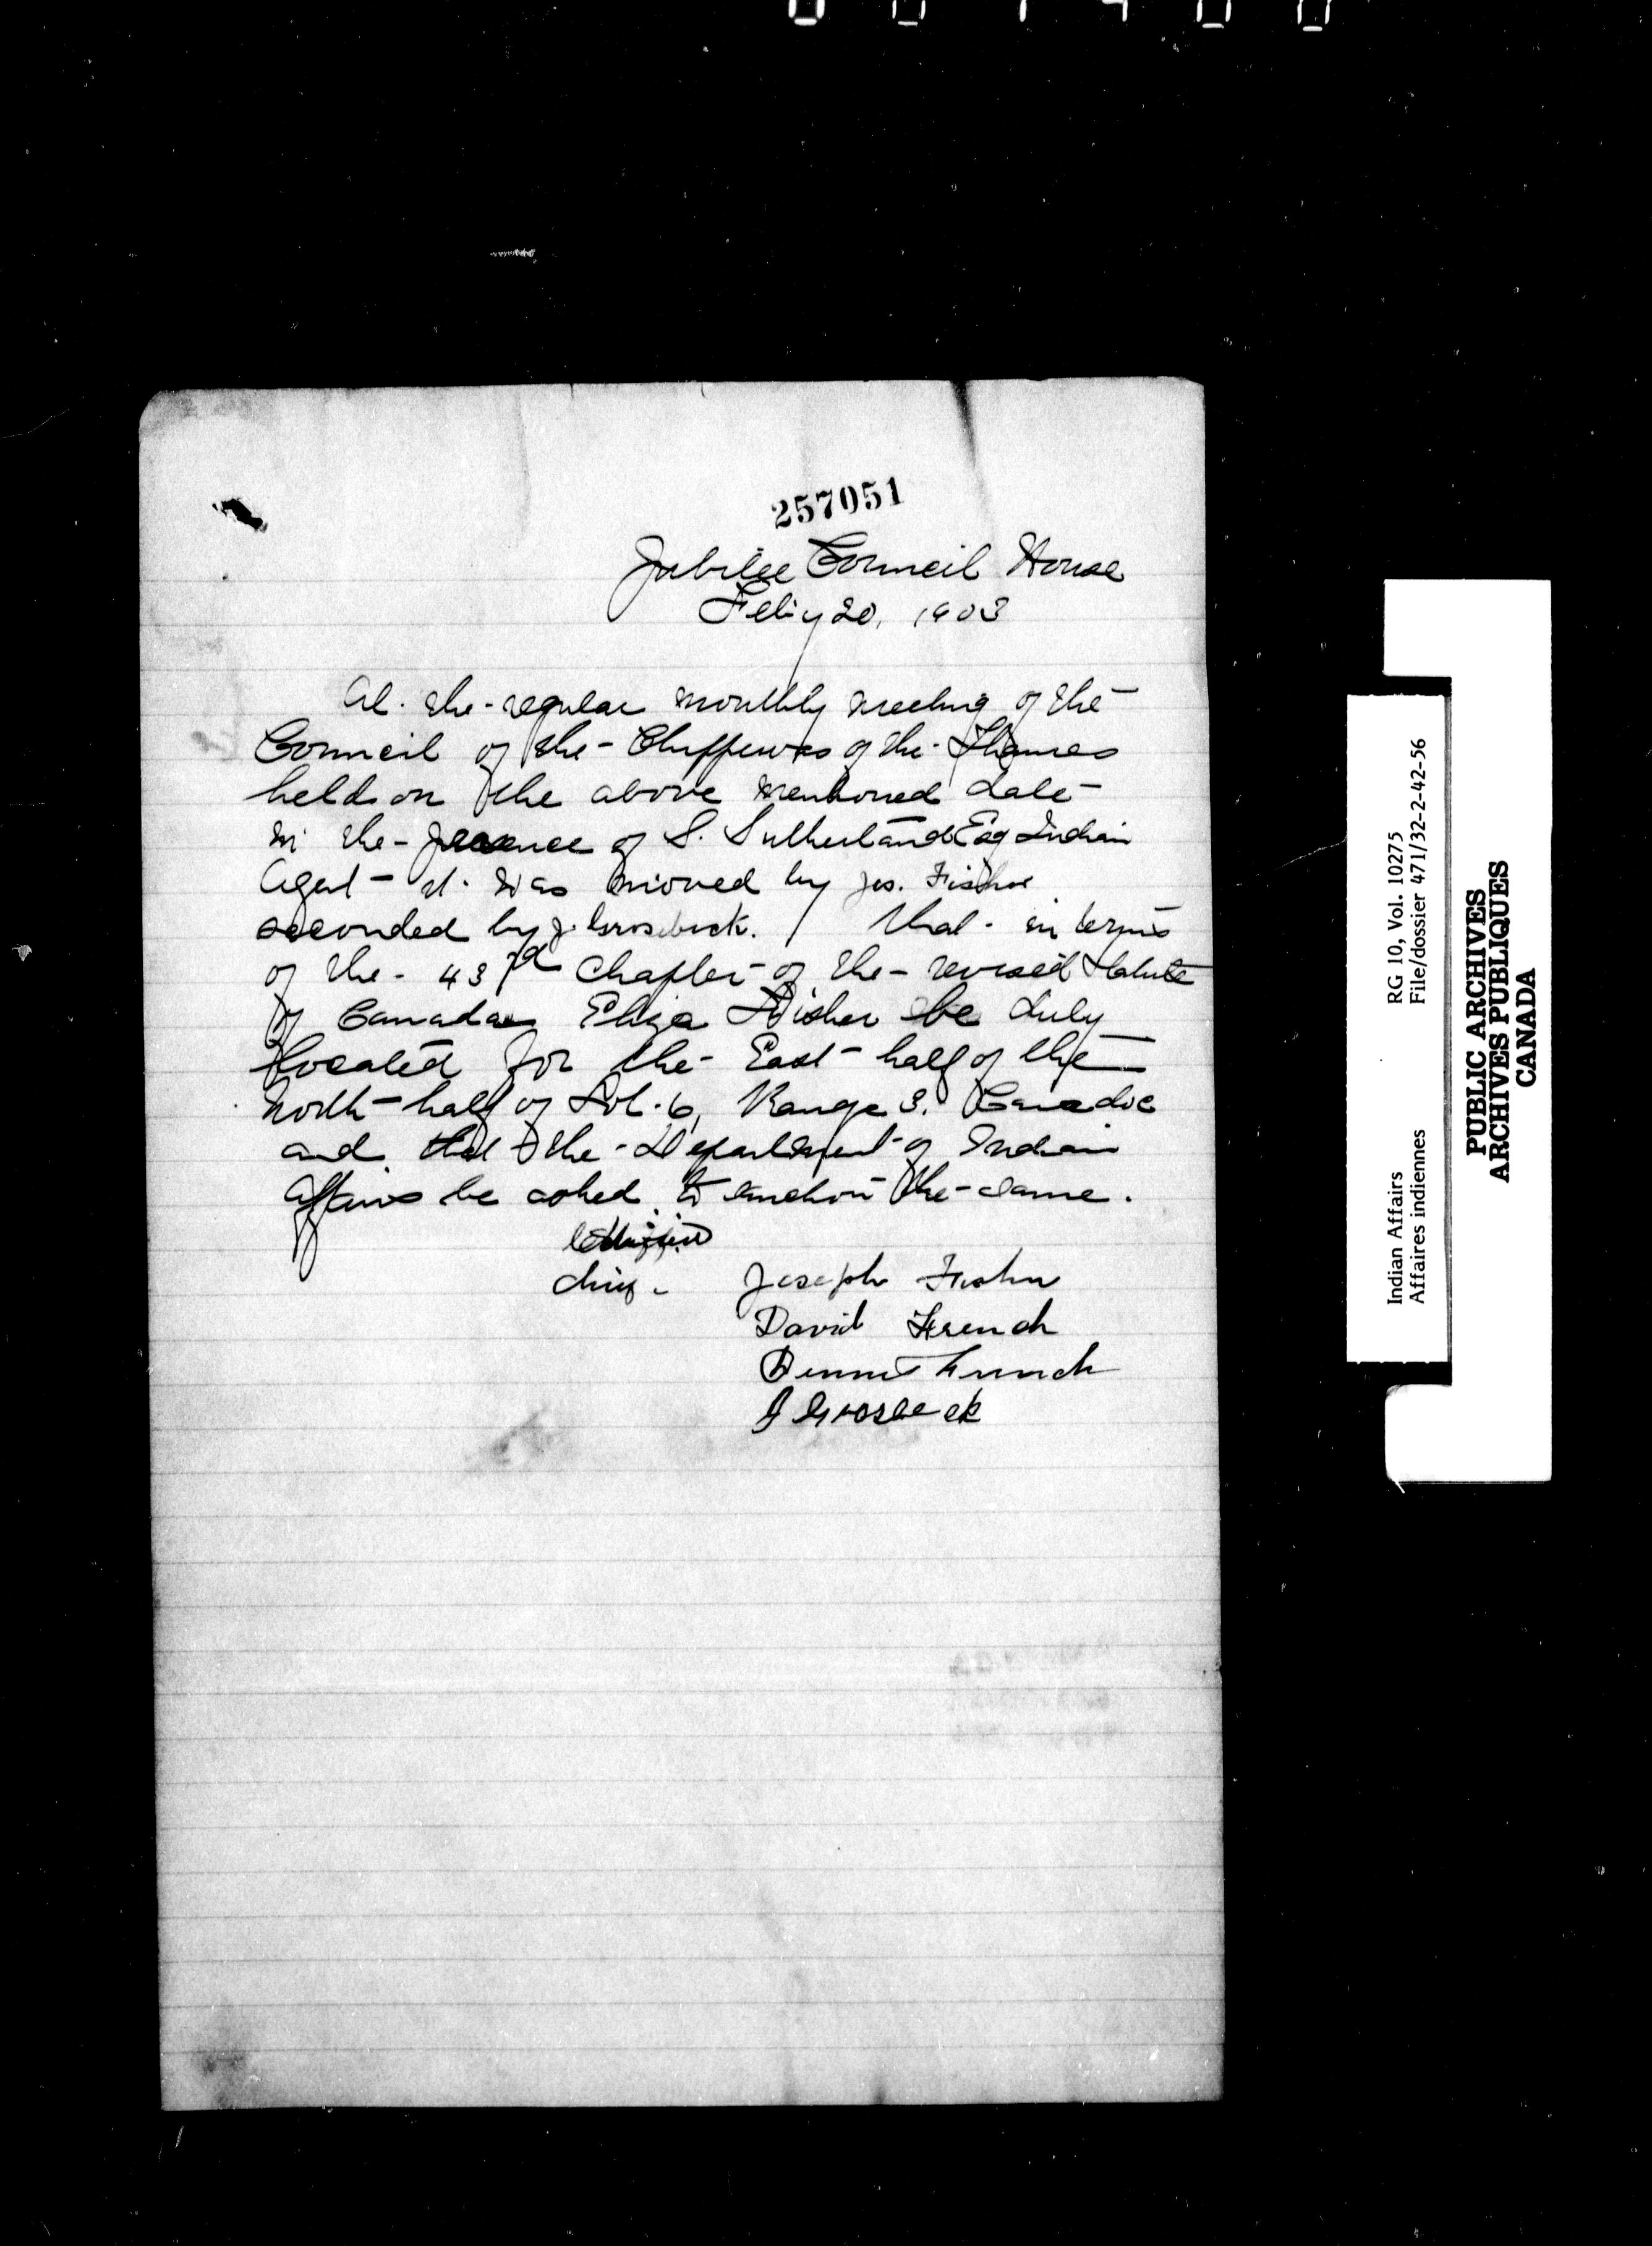 257051
Jubilee Council House
Feb'y 20, 1903
At the regular monthly meeting of the
Council of the Chippewas of the Thames
held on the above mentioned date
in the presence of S. Sutherland Esq Indian
Agent it was moved by Jos. Fisher
seconded by J. Grosbeck. that in terms
of the 43rd Chapter of the revised Statute
of Canada Eliza Fisher be duly
located for the East half of the
North half of Lot 6, Range 3. Caradoc
and that the Department of Indian
Affairs be asked to sanction the same.
Chief
Joseph Fisher
David French
French
J Grosbeck
Indian Affairs RG 10, Vol. 10275
Affaires indiennes File/dossier 471/32-2-42-56
PUBLIC ARCHIVES
ARCHIVES PUBLIQUES
CANADA